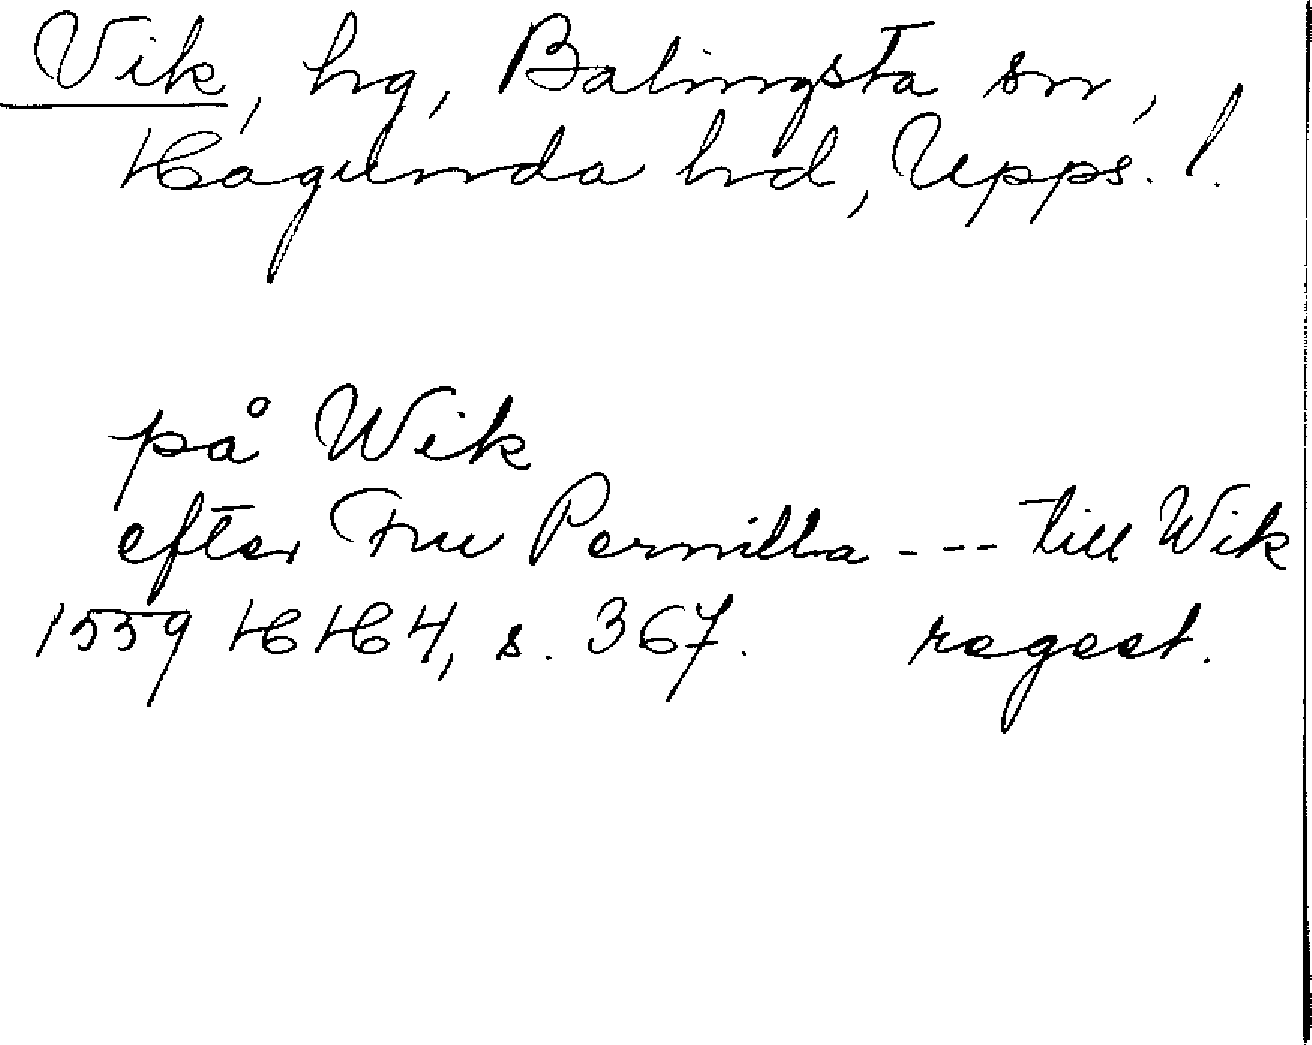 Vik, hg, Balingsta sn,
Hagunda hd, Upps. l.
på Wik
efter Fru Pernilla ---- till Wik
1559 HH 4, s. 367. regest.